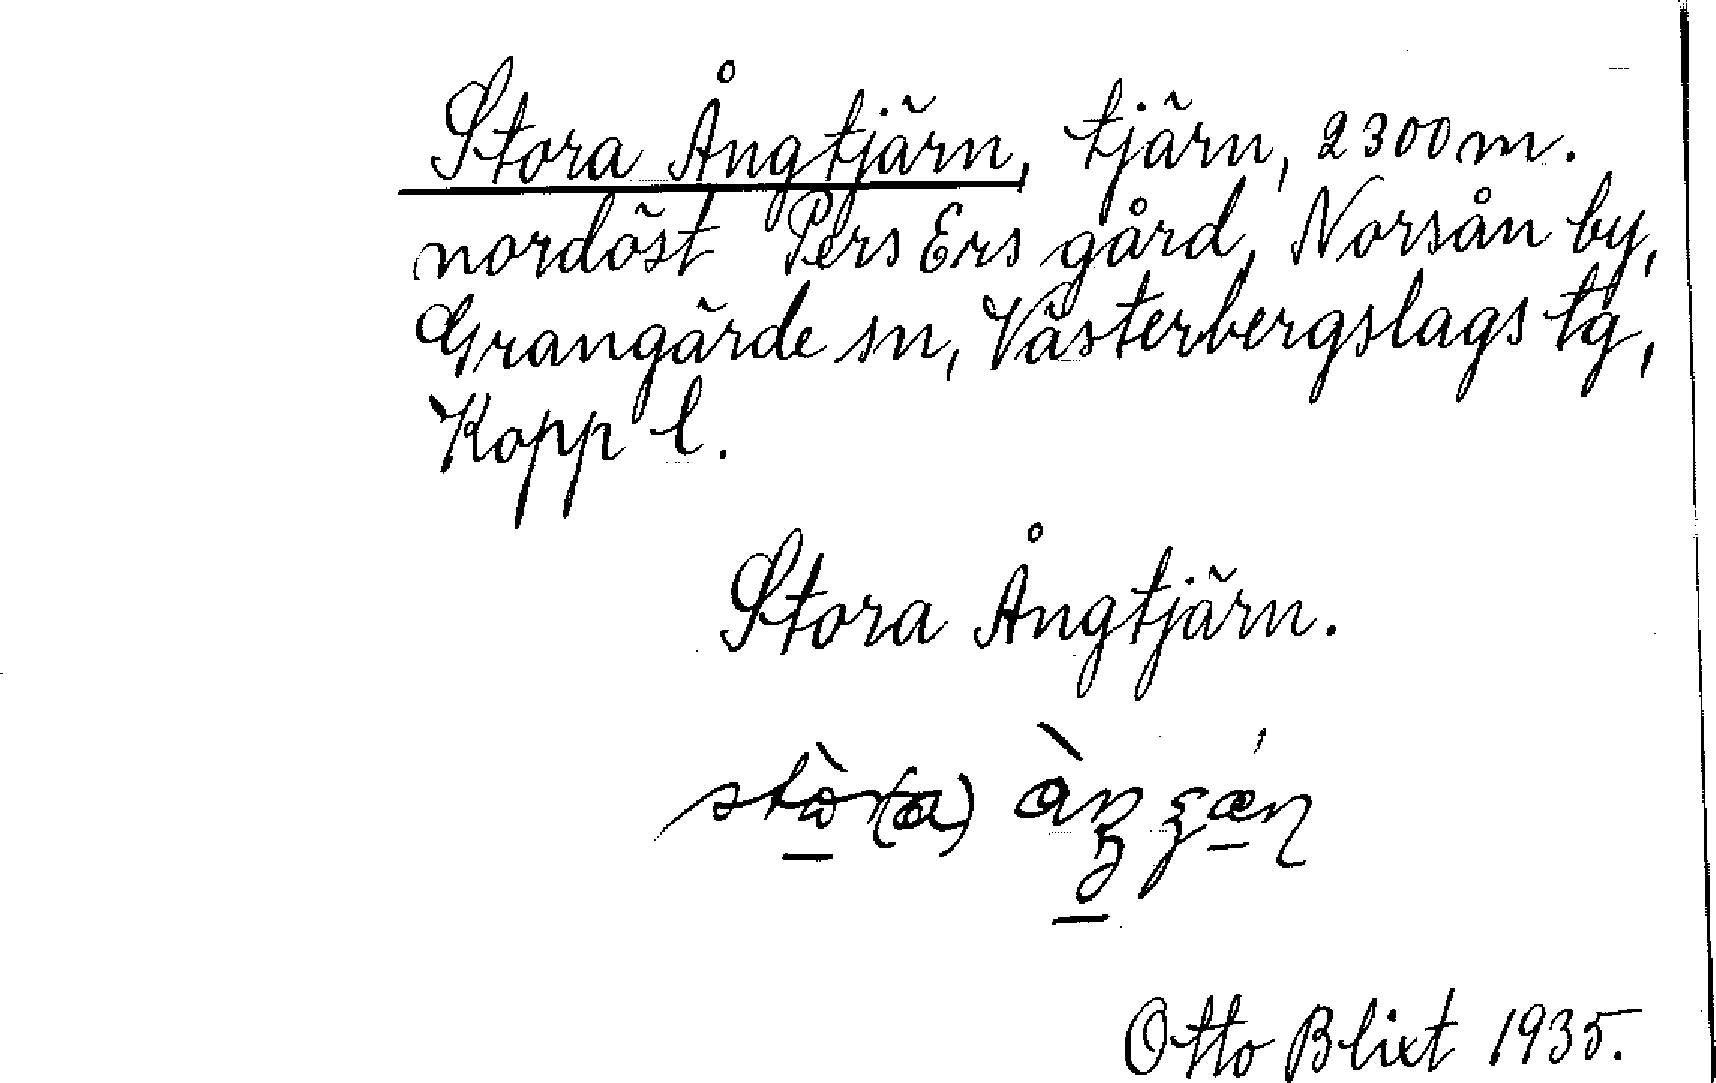 Stora Ångtjärn, tjärn, 2300 m.
nordöst Pers Ers gård, Norsån by,
Grangärde sn, Västerbergslags tg,
Kopp l.
Stora Ångtjärn.
Otto Blixt 1935.